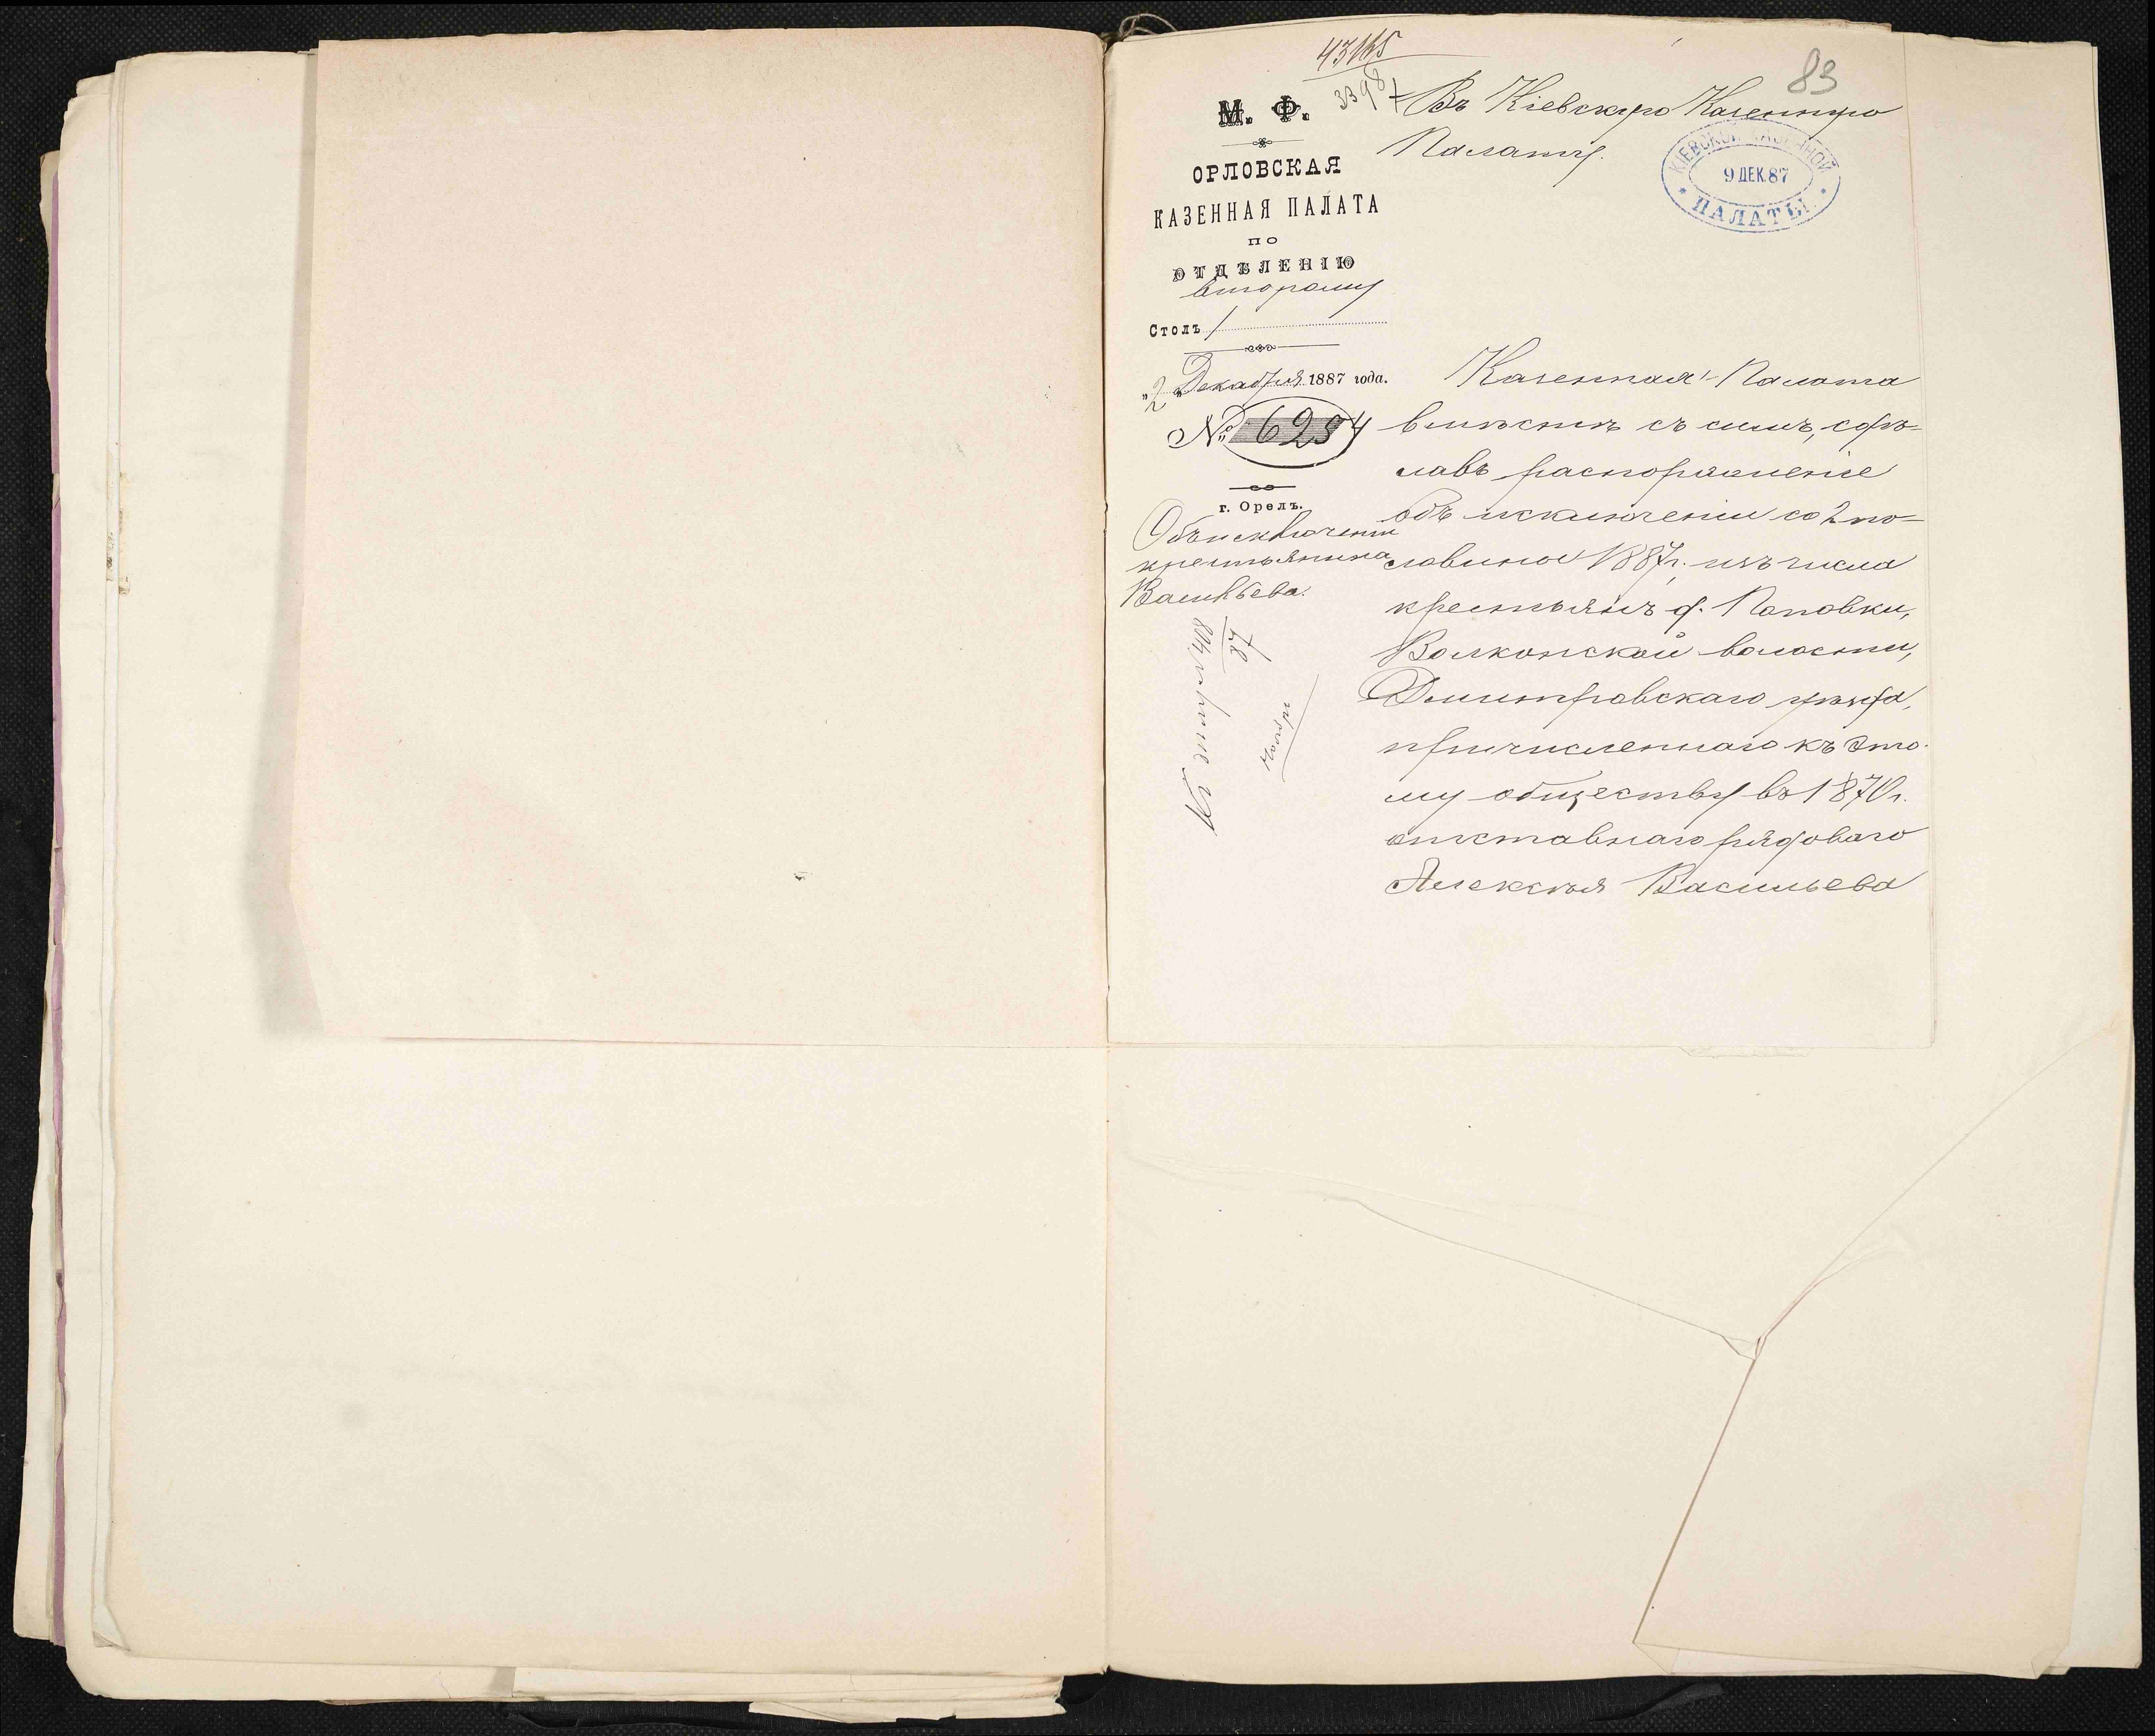 43165
3398
83
М. Ф.
ОРЛОВСКАЯ
КАЗЕННАЯ ПАЛАТА
ПО
ОТДѢЛЕНІЮ
второму
Столъ 1
„2„ Декабря 1887 года.
№ 6294
г. Орелъ.
Объ исключеніи
крестьянина
Васильева.
Въ Кіевскую Казенную
Палату.
КІЕВСКОЙ КАЗЕННОЙ
9 ДЕК. 87
ПАЛАТЫ
Казенная Палата
вмѣстѣ съ симъ, сдѣ-
лавъ распоряженіе
объ исключеніи со 2 по-
ловиной 1887 г. изъ числа
крестьянъ д. Поповки,
Волконской волости,
Дмитровскаго уѣзда,
причисленнаго къ это-
му обществу въ 1870 г.
отставнаго рядоваго
Алексѣя Васильева